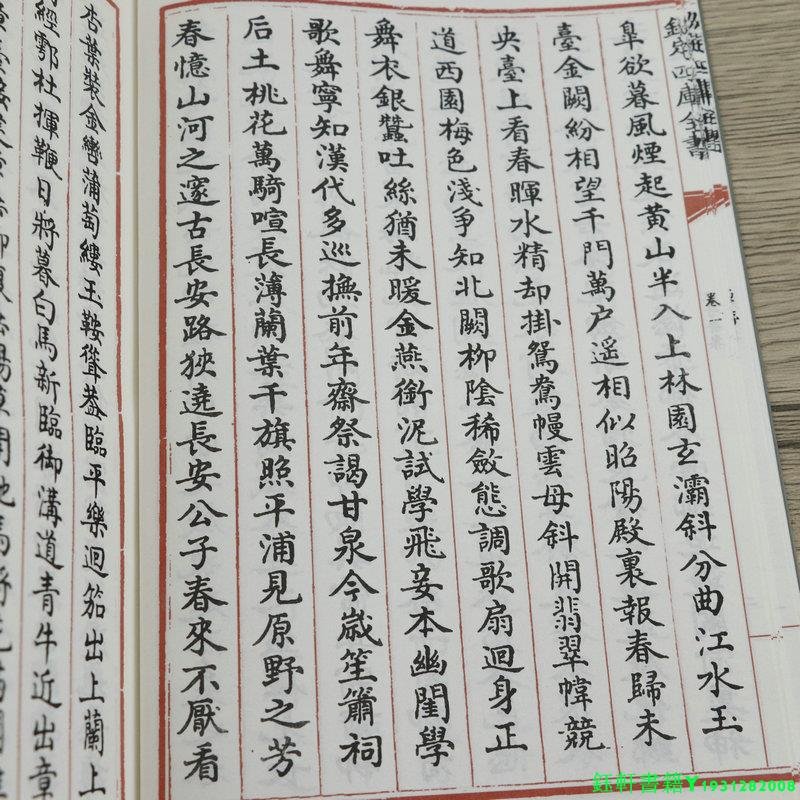 欽定四庫全書
卷一
皐欲暮風煙起黃山半入上林園玄灞斜分曲江水玉
臺金闕紛相望千門萬户遥相似昭陽殿裏報春歸未
央臺上看春暉水精却掛鴛鴦幔雲母斜開翡翠幃競
道西園梅色淺爭知北闕柳陰稀斂態調歌扇迴身正
舞衣銀蠶吐絲猶未暖金燕銜泥試學飛妾本幽閨學
歌舞寧知漢代多巡撫前年齋祭謁甘泉今歲笙簫祠
后土桃花萬騎喧長薄蘭葉千旗照平浦見原野之芳
春憶山河之邃古長安路狹遶長安公子春來不厭看
杏葉裝金轡蒲萄縷玉鞍聳蓋臨平樂迴笳出上蘭上
經鄠杜揮鞭日將暮白馬新臨御溝道青牛近出章
鈺軒書籍Y1931282008